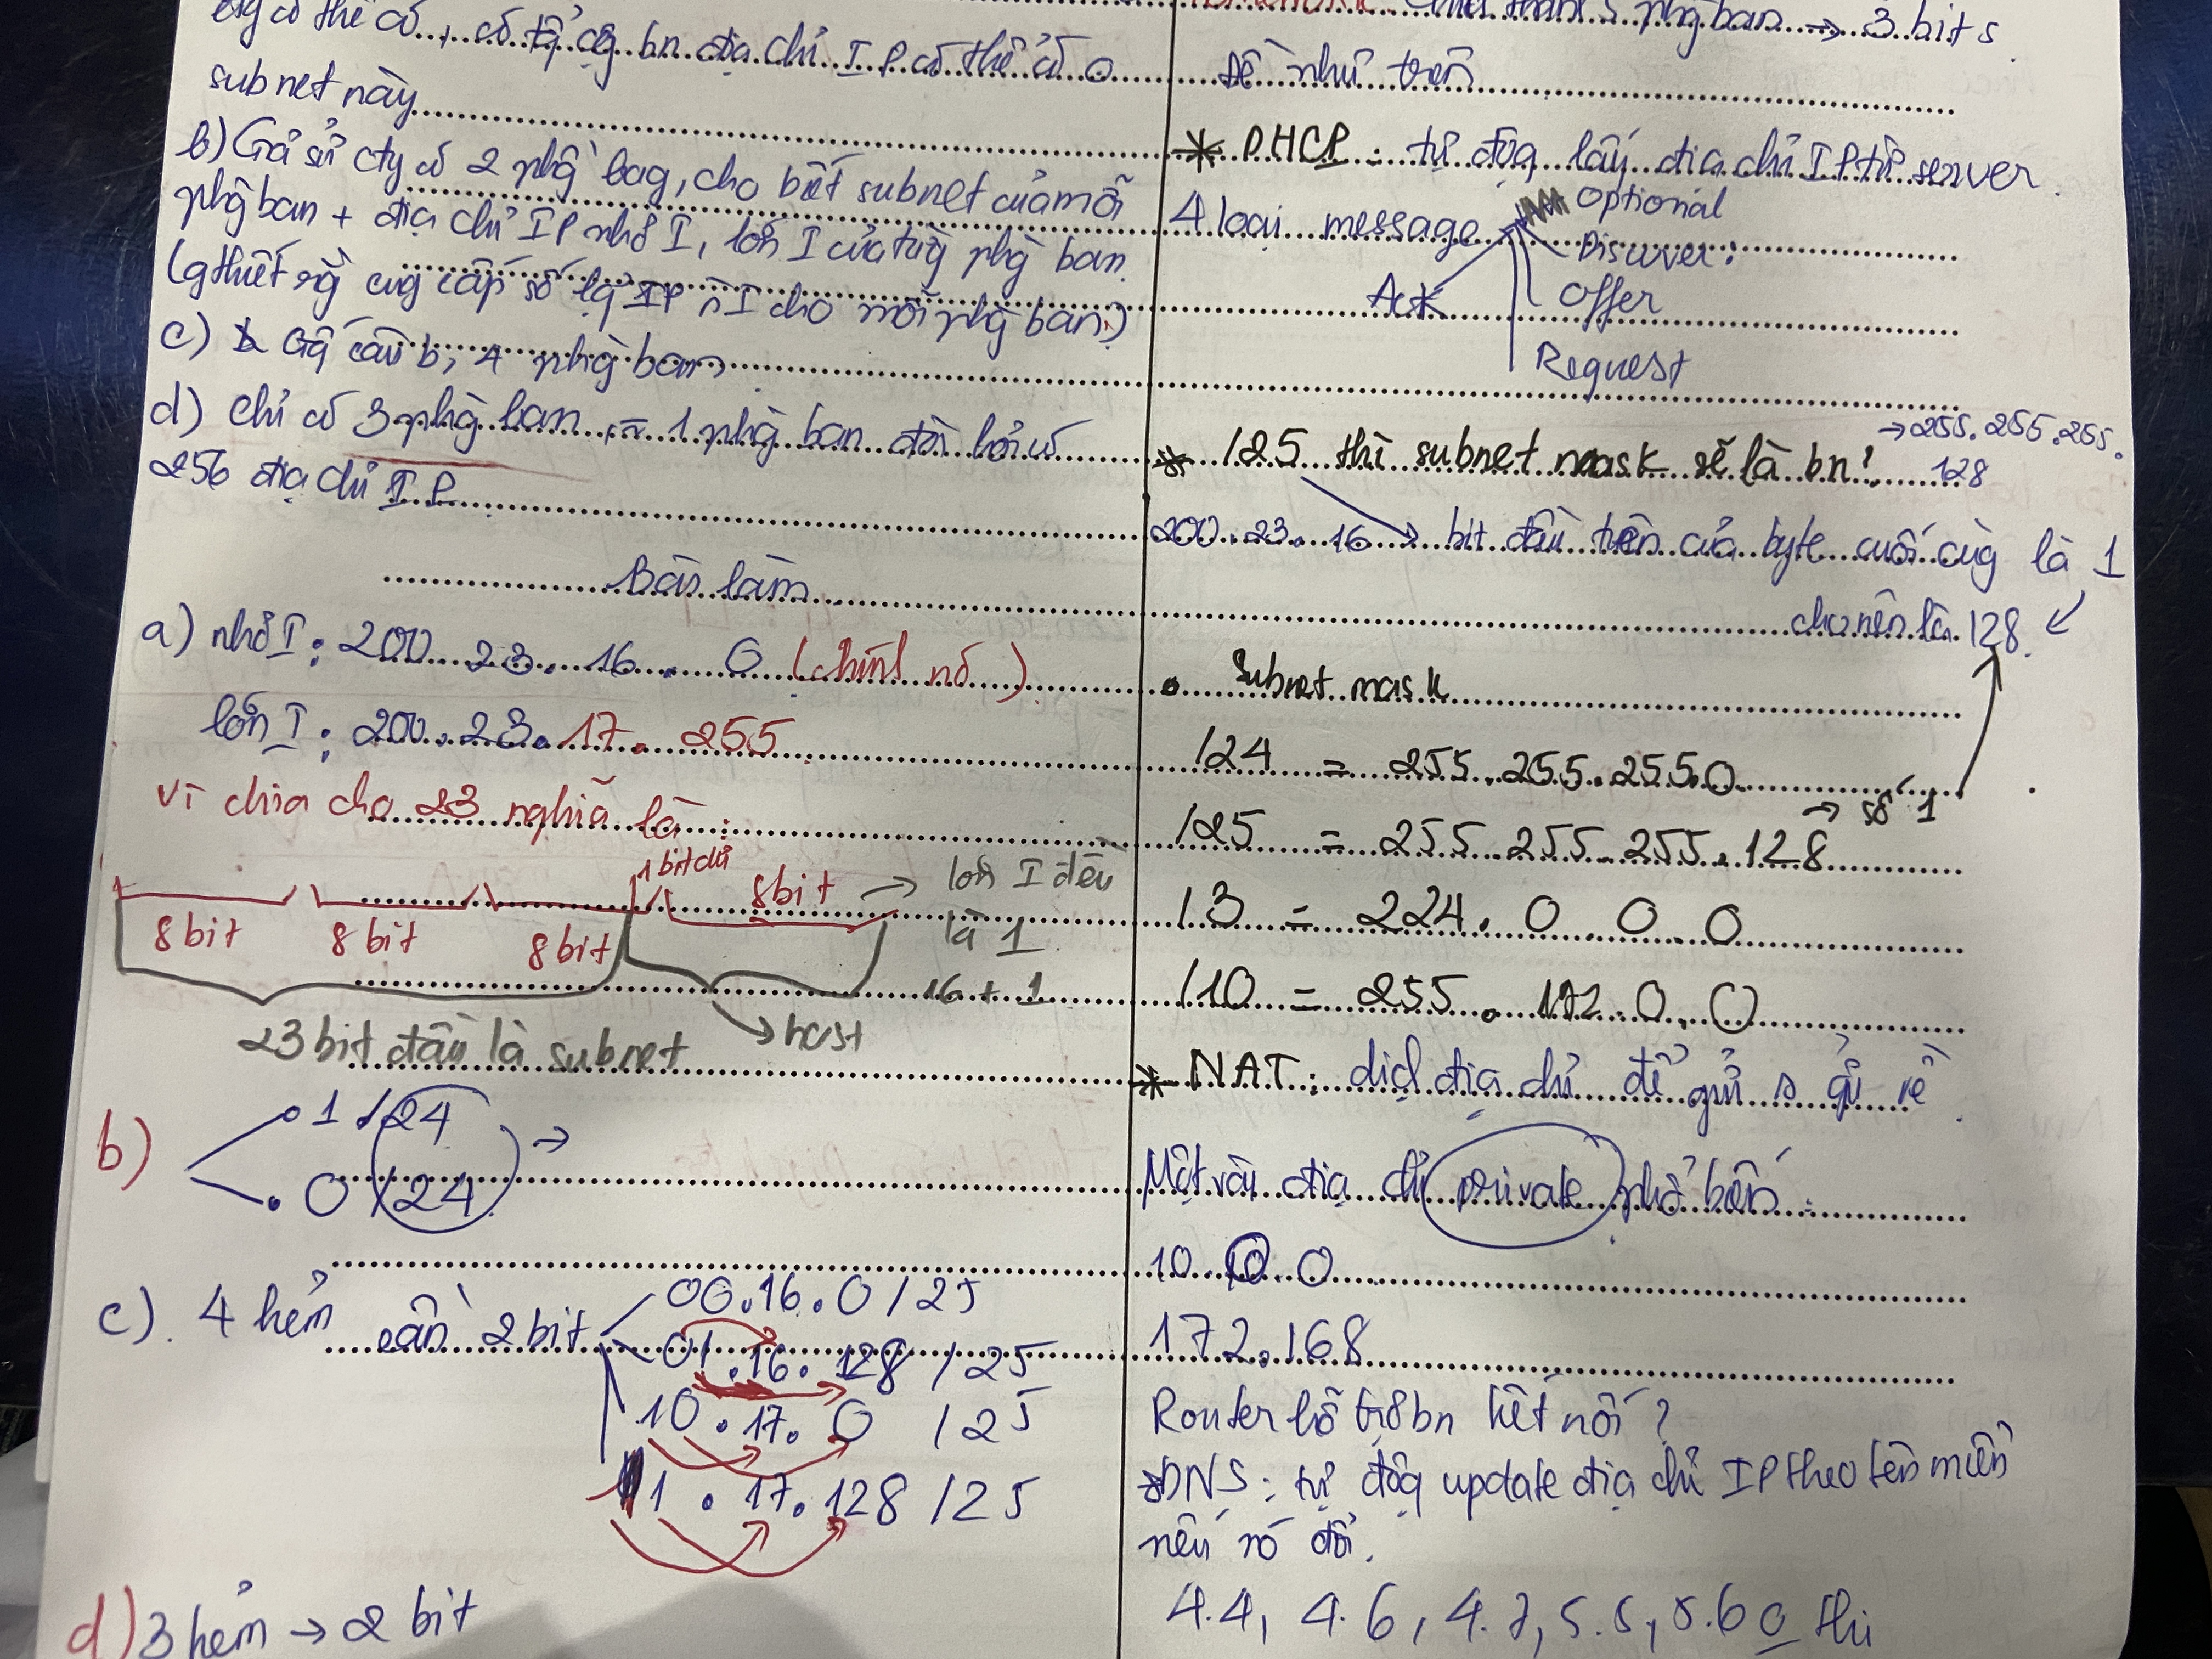 cty có thể có, có tổng cộng bn địa chỉ IP có thể có
subnet này
b) Giả sử cty có 2 phòng ban, cho biết subnet của mỗi
phòng ban + địa chỉ IP nhỏ I, lớn I của từng phòng ban
(gthiết rằng cung cấp số lg IP = nhau cho mỗi phòng ban)
c) cũng câu b, 4 phòng ban
d) chỉ có 3 phòng ban, 1 phòng ban đòi hỏi có
256 địa chỉ IP
Bài làm
a) nhỏ I: 200.23.16.0 (chính nó)
lớn I: 200.23.17.255
Vì chia cho 23 nghĩa là:
1 bit dư
8 bit 8 bit 8 bit 8 bit → lớn I đều
là 1
16 + 1
23 bit đầu là subnet → host
b) .1/24
.0/24 →
c) 4 hẻn cần 2 bit
00.16.0/25
01.16.128/25
10.17.0/25
1.17.128/25
d) 3 hẻn → 2 bit
như trên
phòng ban → 3 bits.
* DHCP: tự động lấy địa chỉ IP từ server.
4 loại message
optional
Discover:
Offer
Request
Ack
* /25 thì subnet mask sẽ là bn? → 255.255.255.
128
200.23.16 → bit đầu tiên của byte cuối cùng là 1
cho nên là 128.
• Subnet mask
/24 = 255.255.255.0
/25 = 255.255.255.128 → số 1
/3 = 224.0.0.0
/10 = 255.192.0.0
* NAT: dịch địa chỉ để gửi n gửi về
Một vài địa chỉ private phổ biến:
10.0.0
172.168
Router hỗ trợ bn kết nối?
*DNS: tự động update địa chỉ IP theo tên miền
nên nó đổi.
44, 46, 47, 5.5, 5.6 thi